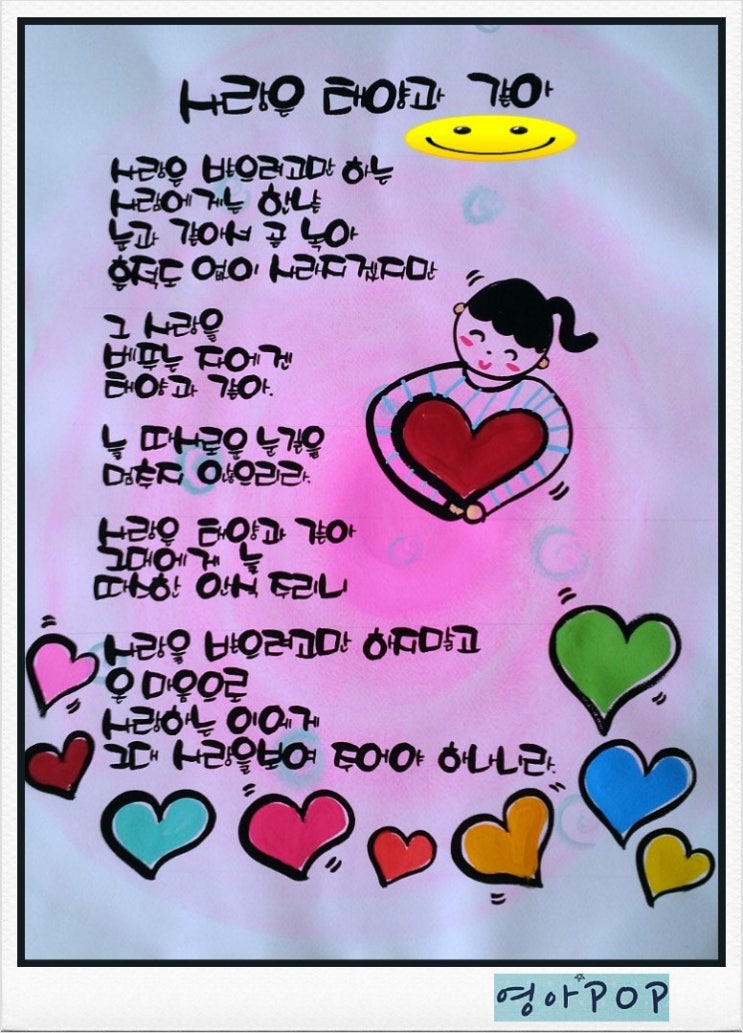 사랑은 태양과 같아
사랑은 받으려고만 하는
사람에게는 한낱
눈과 같아서 곧 녹아
흔적도 없이 사라지겠지만
그 사랑을
베푸는 자에겐
태양과 같아.
늘 따사로운 눈길을
멈추지 않으리라.
사랑은 태양과 같아
그대에게 늘
따스한 안식 주리니
사랑을 받으려고만 하지말고
온 마음으로
사랑하는 이에게
그대 사랑을보여 주어야 하나니라.
영아POP